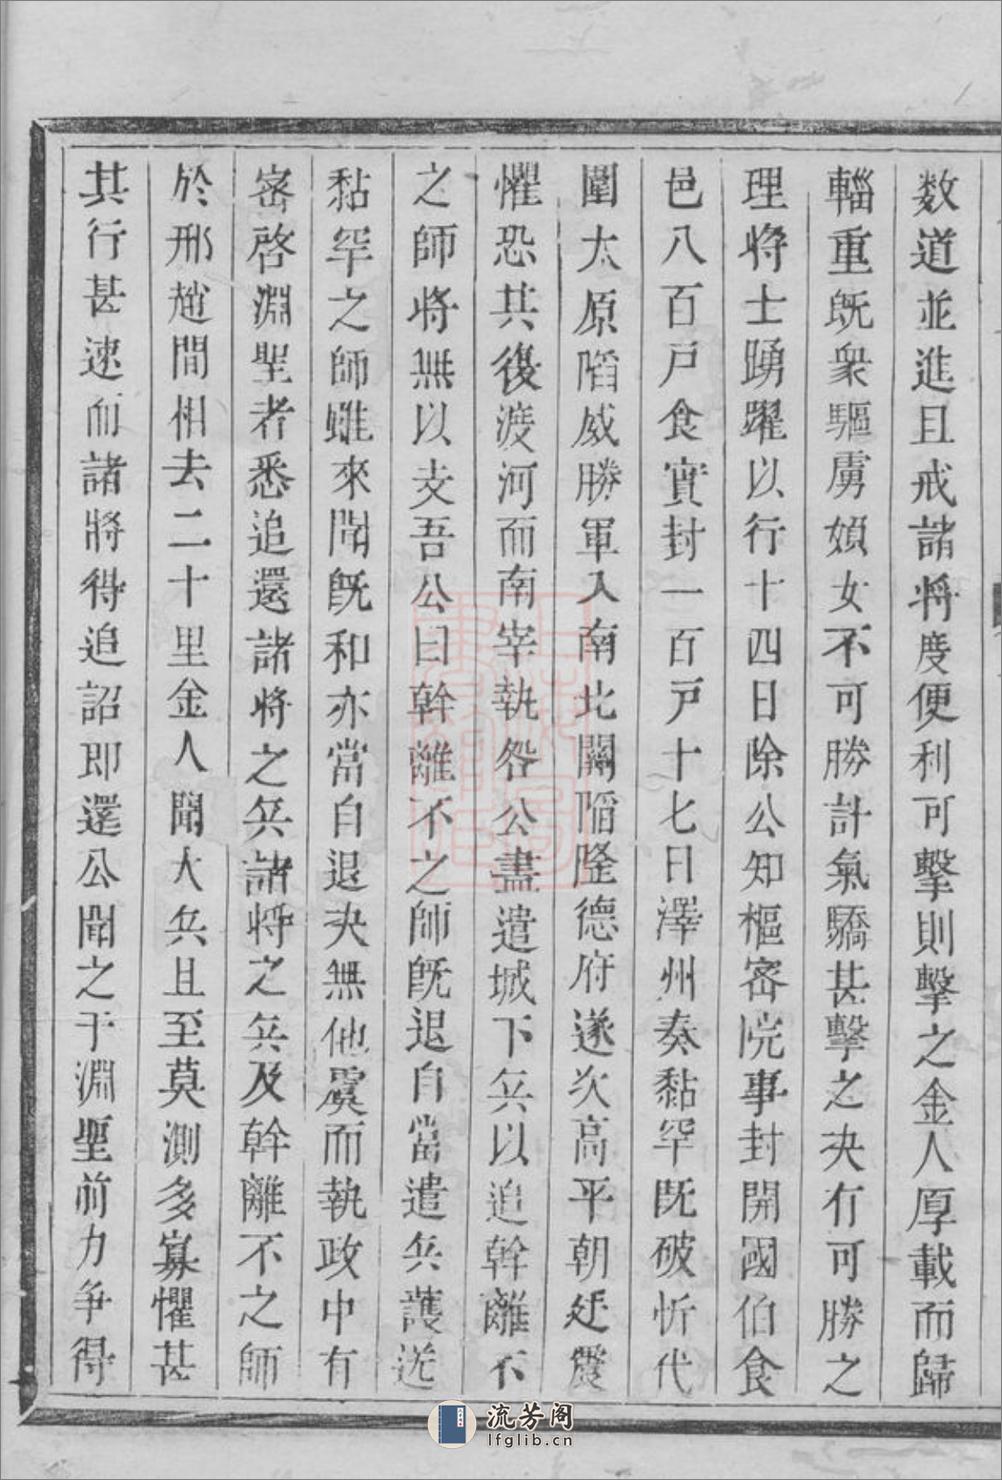 数道並進且戒諸将度便利可擊則擊之金人厚載而歸
輜重旣衆驅虜婦女不可勝計氣驕甚擊之決有可勝之
理將士踴躍以行十四日除公知樞密院事封開國伯食
邑八百戸食實封一百戸十七日澤州奏黏罕既破忻代
圍太原陷威勝軍入南北關陷隆德府遂次高平朝廷震
懼恐其復渡河而南宰執咎公盡遣城下兵以追幹離不
之師將無以支吾公曰幹離不之師旣退自當遣兵護送
黏罕之師雖來聞旣和亦當自退決無他虞而執政中有
密啓淵聖者悉追還諸將之兵諸將之兵及幹離不之師
於邢趙間相去二十里金人聞大兵且至莫測多寡懼甚
其行甚速而諸將得追詔即還公聞之于淵聖前力争得
流芳阁
lfglib.cn